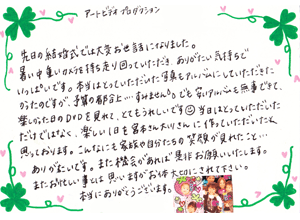 アートビデオ プロダクション
先日の結婚式では大変お世話になりました。
暑い中重いカメラを持ち走り回っていただき、ありがたい気持ちで
いっぱいです。本当はとっていただいた写真もアルバムにしていただきた
かったのですが、予算の都合上…すみません。でも安いアルバムも無事できて、
楽しかった日のDVDを見れて、とてもうれしいです 当日はとっていただいた
だけではなく、楽しい1日を
思っております。こんなにも家族や自分たちの笑顔が見れたこと…
ありがたいです。また機会があれば是非お願いいたします。
またお忙しい事とは思いますがお体大切にされて下さい。
本当にありがとうございます。